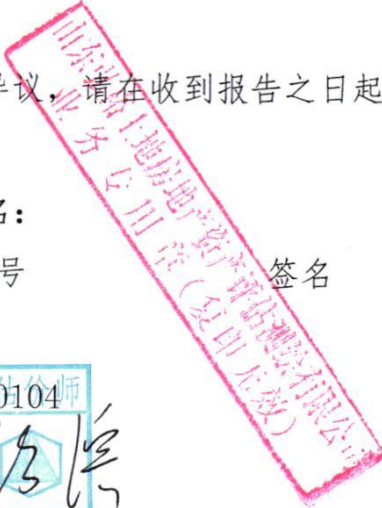 异议，请在收到报告之日起
名：
号
签名
0104
估价师
土地房地产资产评估
有限公司
业务专用章（复印无效）